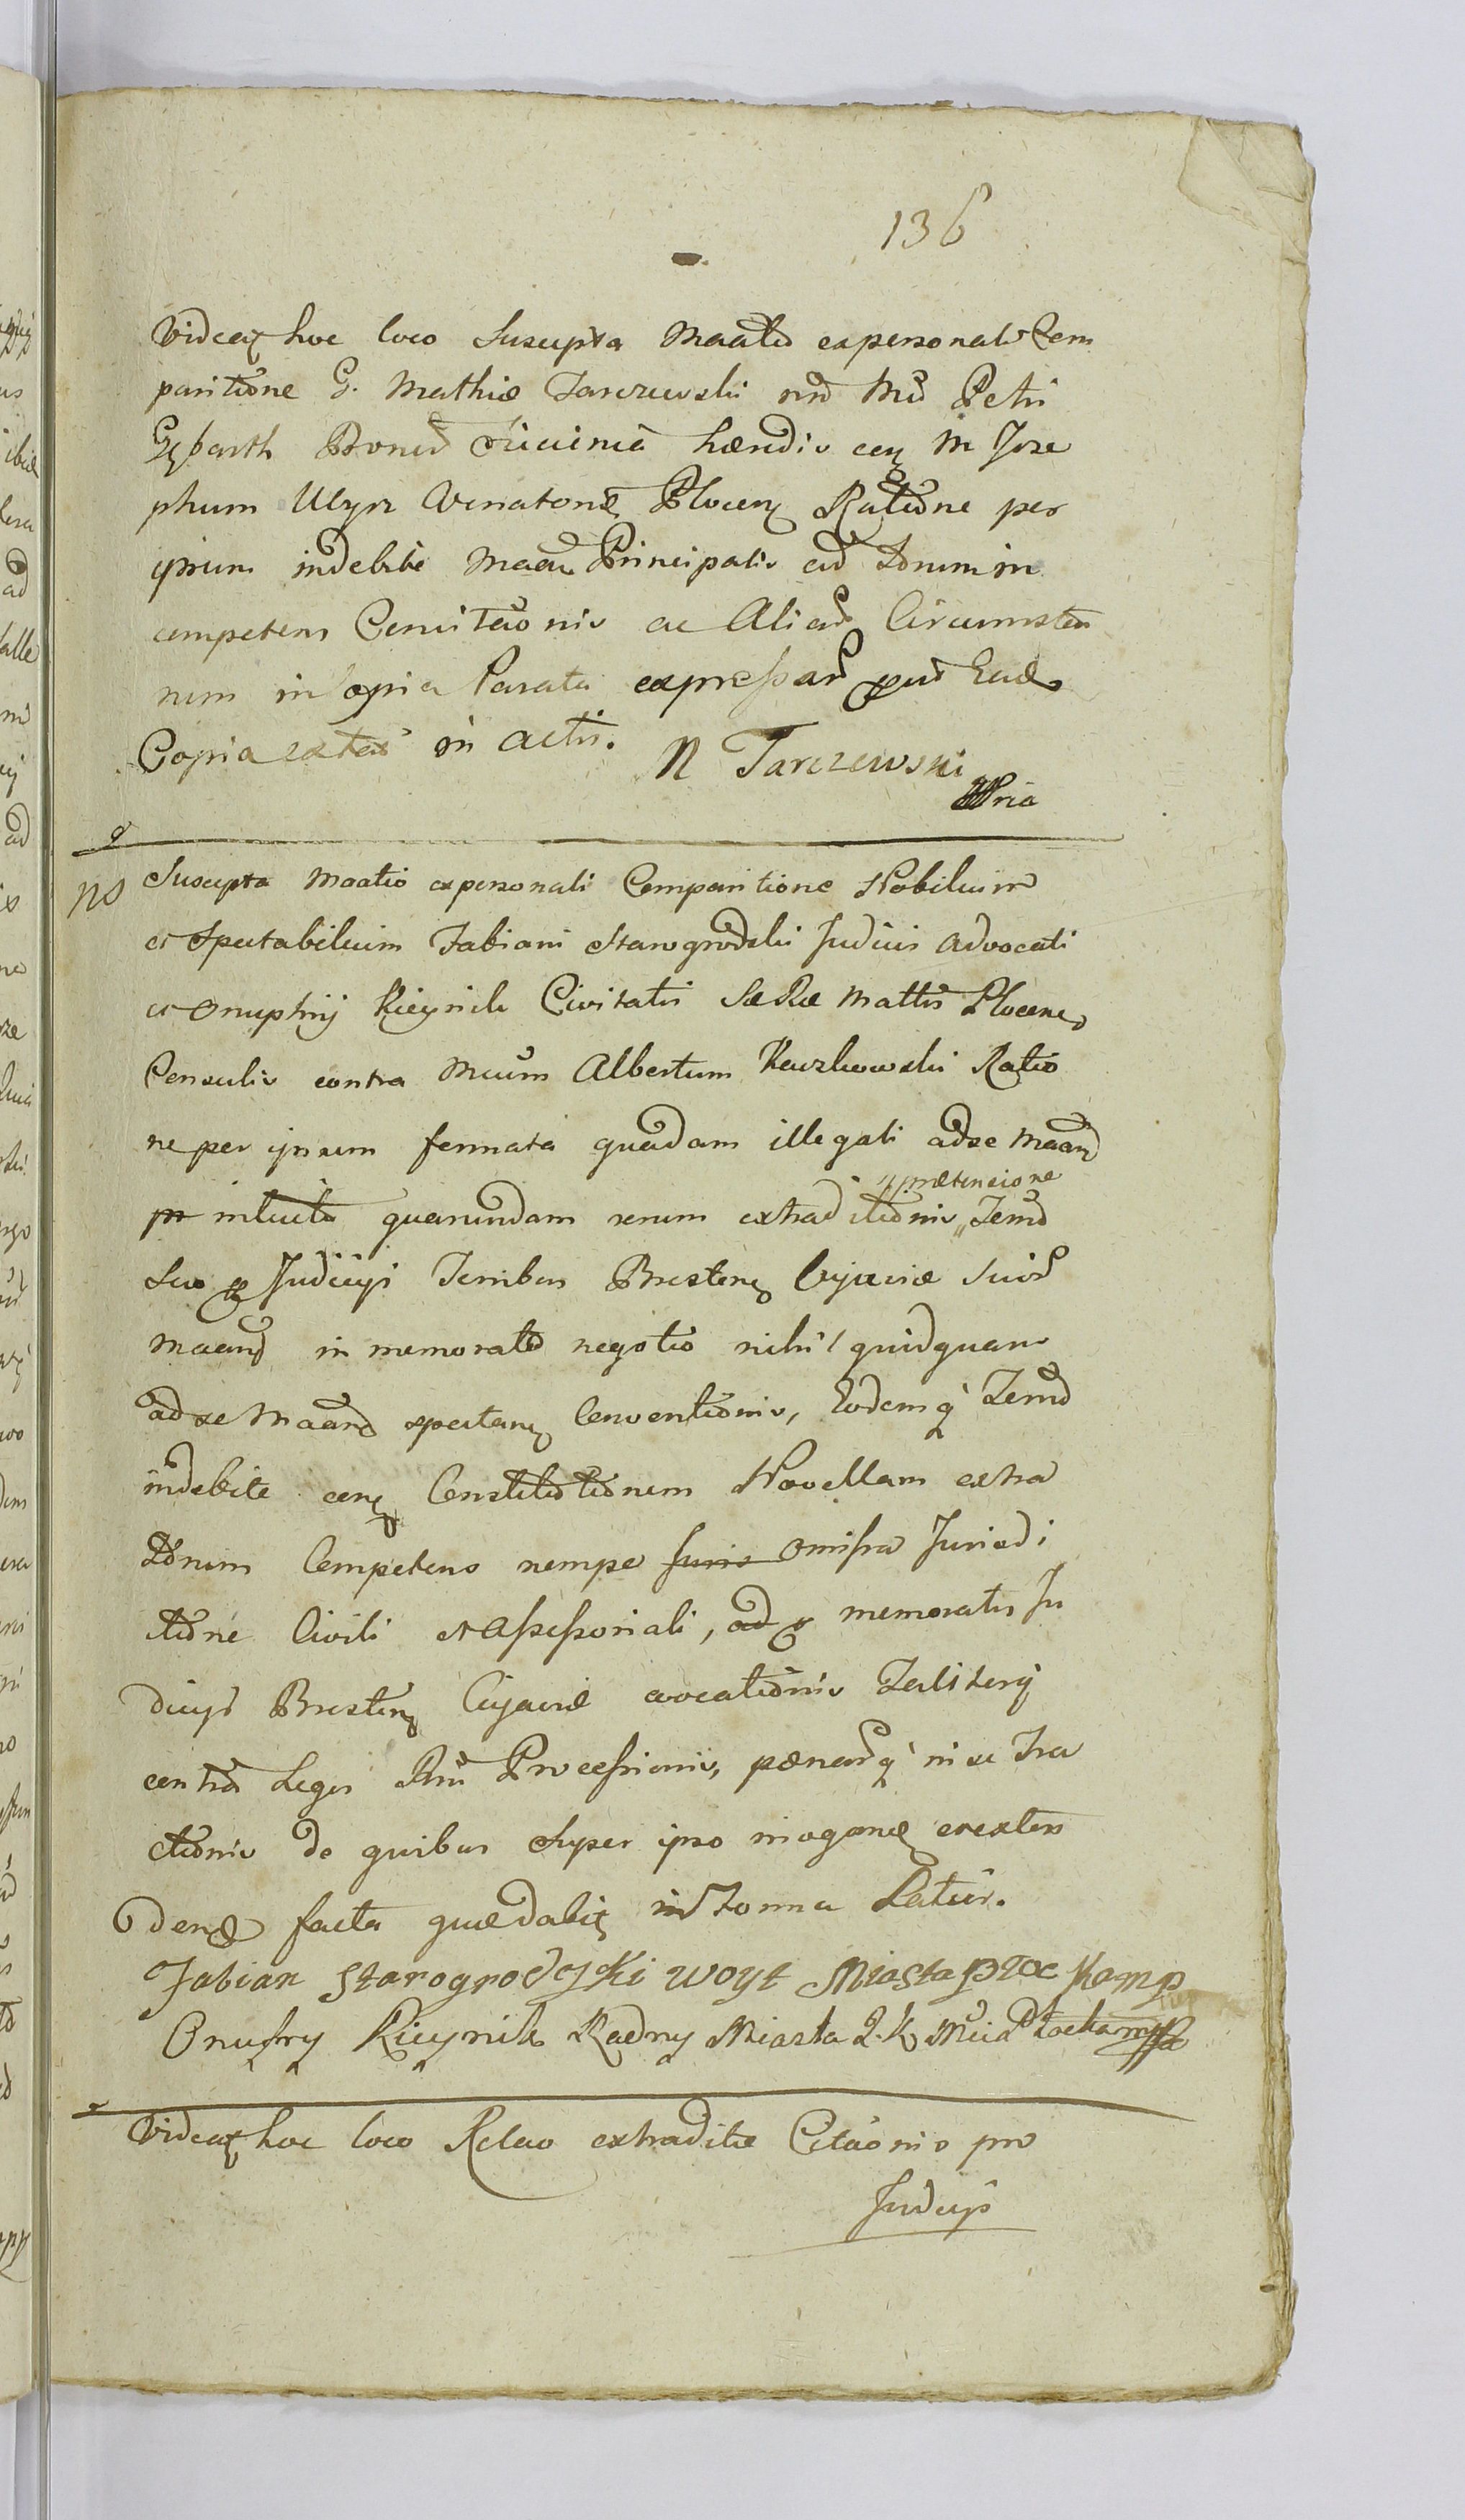 136
Videatʒ hoc loco Suscepta Maãtio ex personali Com
paritione G. Mathiæ Tarczewski nñe Mci Petri
Bonorũ hæredis con M Jose
phum Ulryz Venatorẽ Plocenʒ Ratiõne per
ipsum indebite Maãn Principalis ad Forum in
competens Concitaõnis ac Aliarũ Circumstan
num in Copia Parata expressarũ prout Eadẽ
Copia extat in actis.
M Tarczewski
mpria
No Suscepta Maãtio ex personali Comparitione Nobilium
et Spectabilium Fabiani Starogrodzki Judicis Advocati
et Onuphrij Kicynik Civitatis SæRæ Mattis Plocens
Consulis contra Mcum Albertum Ratio
ne per ipsum formata quadam illegali ad se Maãnd
pr intuitu quarundam rerum extraditiõnis „Termõ
„prætensione
suo pro Judicijs Terribus Brestenʒ Cujaviæ Suorũ
Maand in memorato negotio nihil quidquam
ad se Maand spectanʒ Conventiõnis, Eodemq̃ Termõ
indebite conʒ Constitutiõnem Novellam extra
Fõrum Competens nempe Juris Omissa Jurisdi
ctiõne Civili et Assessoriali, ad pro memoratis Ju
dicijs Brestenʒ Cujaviæ evocatiõnis Taliterq̃
contra Leges Rni Processionis, pœnarũq̃ in se Tra
ctiõnis de quibus super ipso exten
denđ facta quædabitʒ in Forma Latiũr.
Fabian Starogrodzki Woyt Miasta Płoc kamp
Onufry Kicynik Radny Miasta J. K Mci Płocka mpp
Videatʒ hoc loco Relaõ extraditæ Citaõnis pro
Judicijs